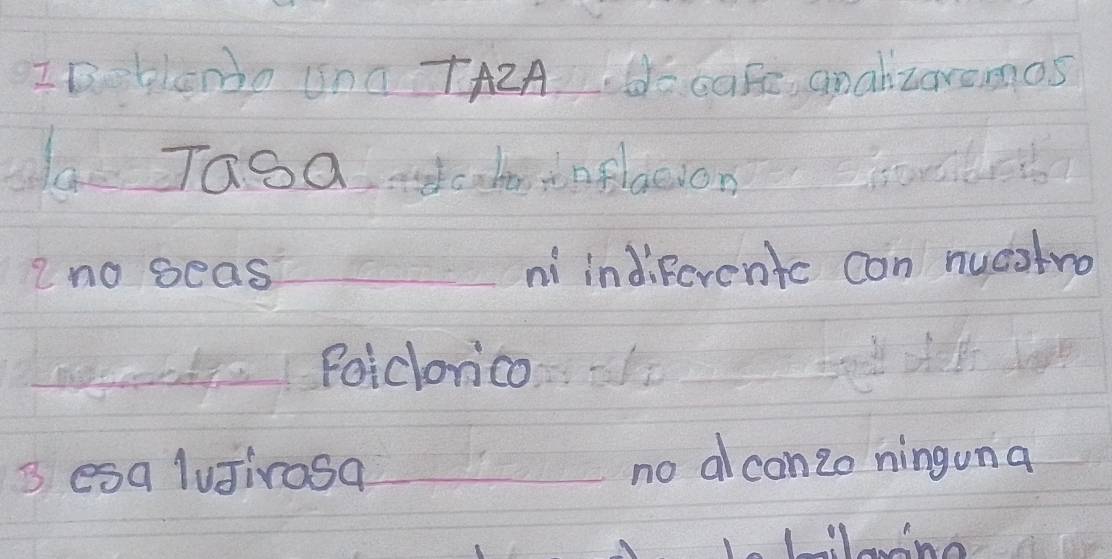 una TAZA de cafe, analizaremos
la Tasa de la inflacion
2 no seas ni indiferente con nuestro
Foiclorico
3 esa luJirosa no alcanzo ninguna